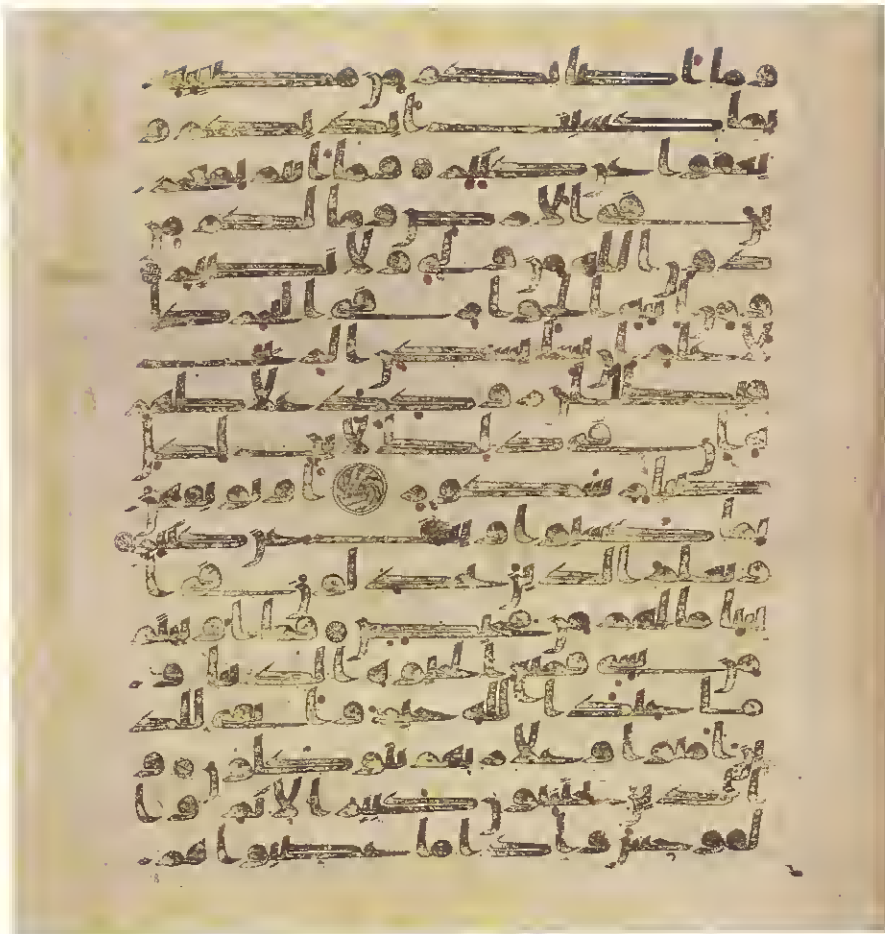 وما اصابكم من مصيبة
بما كسبت ايديكم و
يعفوا عن كثير وما انتم بمعجز
ين في الارض وما لكم من
دون الله من ولي ولا نصير
ومن ايته الجوار في البحر كا
لاعلم ان يشا يسكن الريح
فيظللن رواكد على ظهر
ه ان في ذلك لايت لكل
صبار شكور او يوبقهن
بما كسبوا ويعف عن كثير
ويعلم الذين يجدلون في ا
يتنا ما لهم من محيص فما اوتيتم
من شي فمتع الحيوة الدنيا و
ما عند الله خير وابقى للذ
ين امنوا وعلى ربهم يتوكلون و
الذين يجتنبون كبير الاثم وا
لفوحش واذا ما غضبوا هم